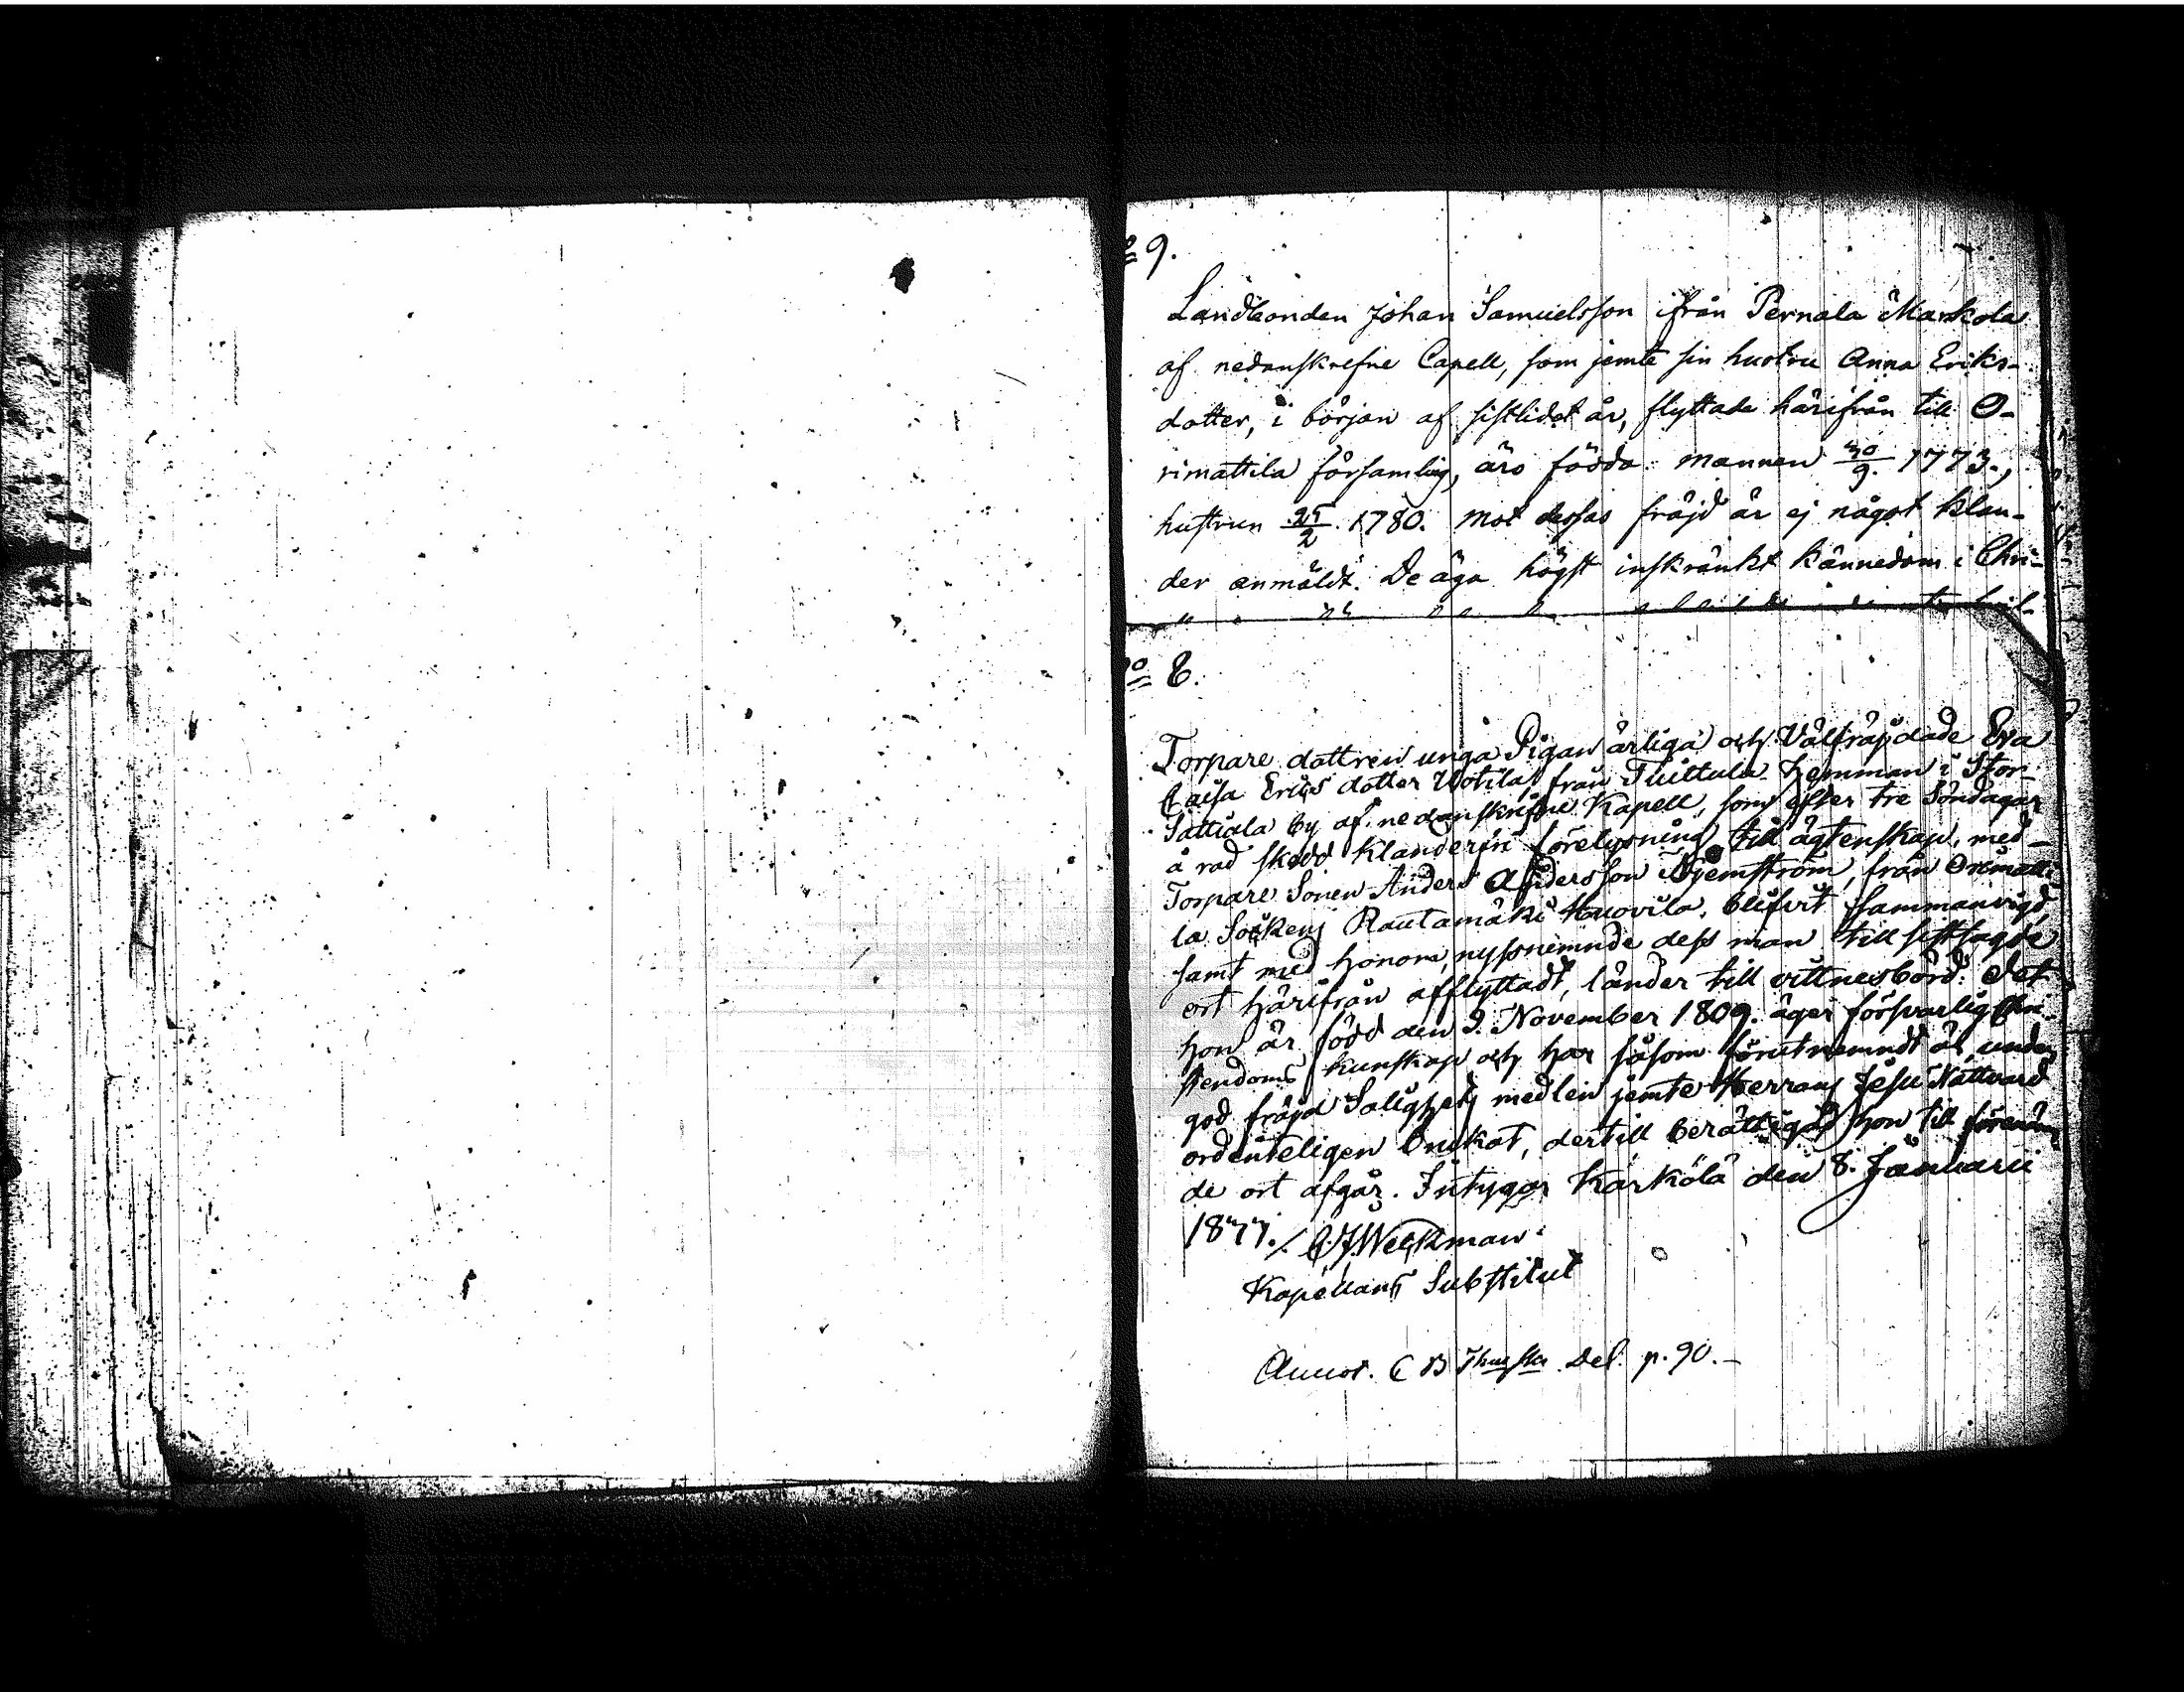 9.
Landbonden Johan Samuelsson ifrån Pernala Markola
af nedanskrefne Capell, som jemte sin hustru Anna Eriks-
dotter, i början af sistlidet år, flyttade härifrån till O-
rimattila församling, äro födda: mannen 30/9. 1773.,
hustrun 25/2 1780. Mot dessas fräjd är ej något klan-
der anmäldt. De äga högst inskränkt kännedom i Chri-
No 8.
Torpare dottren unga Pigan ärliga och Välfräjdade Eva
Caisa Erics dotter Uotila, från Tuittula Hemman i Stor
Sattiala by af nedanskrifne Kapell, som efter tre Söndagar
å rad skedd klanderfri förelysning till ägtenskap, med
Torpare Sonen Anders Andersson, från Orimatti
la Socken Rautamäki Huovila, blifvit sammanvigd,
samt med honom, nyssnemnde dess man till sistsagde
ort härifrån afflyttadt, länder till vittnesbörd: Det
hon är född den 9. November 1809. äger försvarlig Chri-
stendoms kunskap och har såsom förutnemndt är under
god fräjd Salighets medlen jemte Herrans Jesu Nattvard
ordenteligen brukat, dertill berättigad hon till förenäm
de ort afgår. Intygar Kärkölä den 8. Januarii
1877. /. C.J. Weckman
Kapellans Substitut
Annot. C B Del. p. 90.-